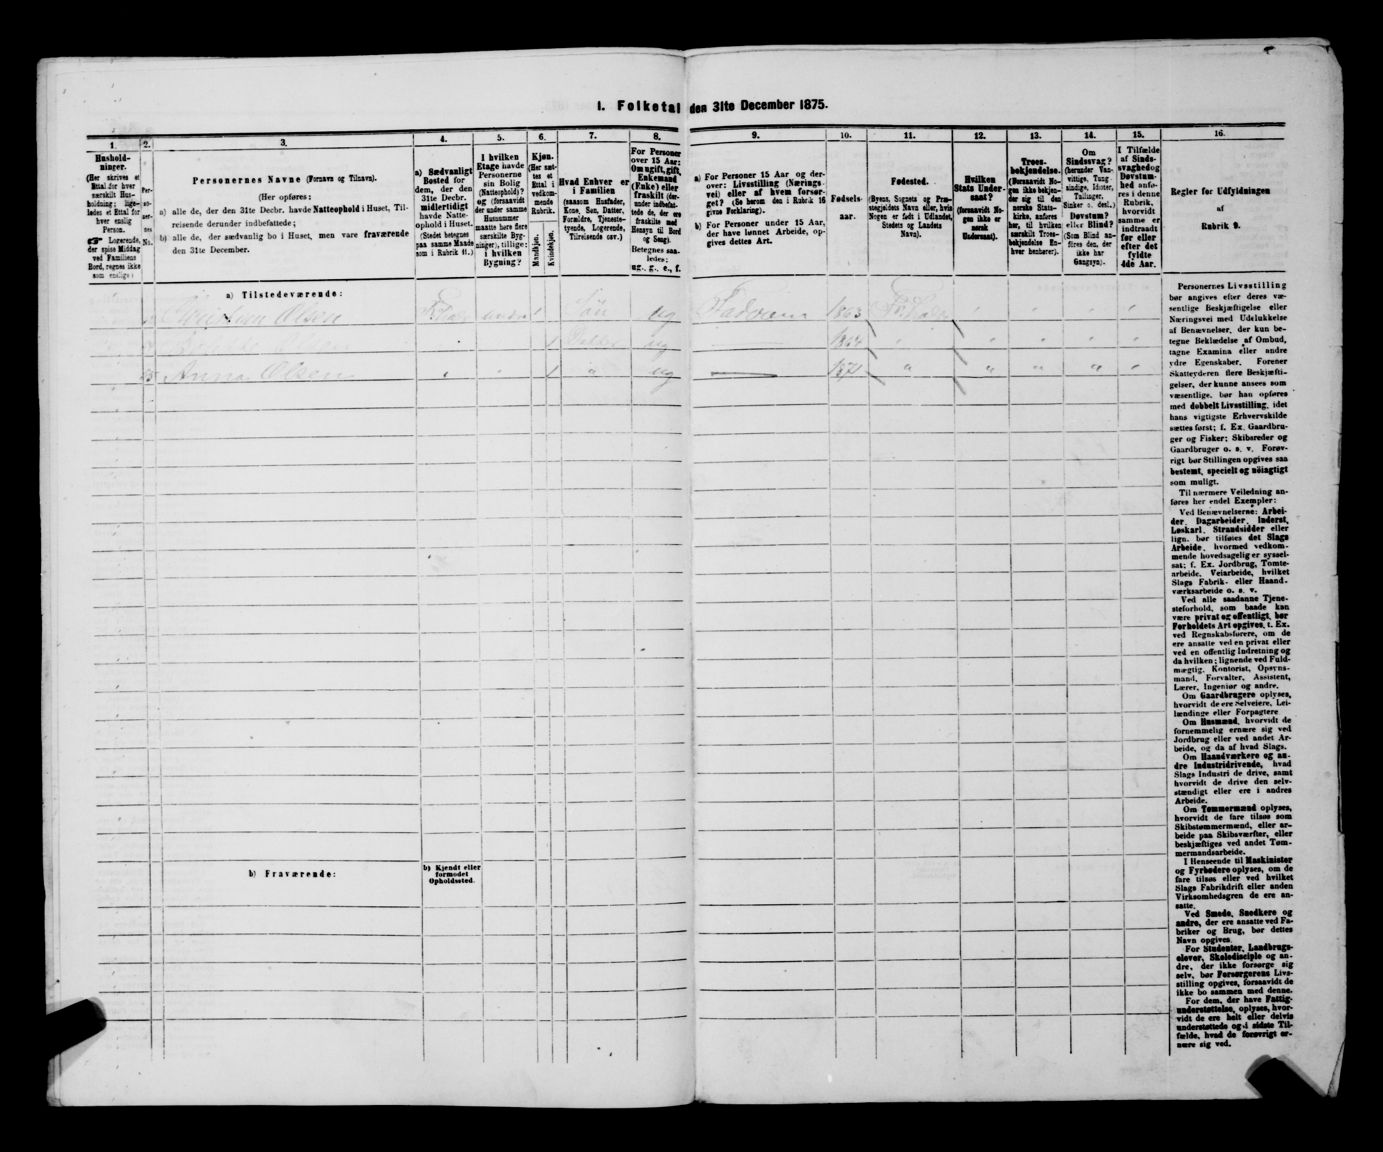 1. Folketal den 31te December 1875.
1.
2.
3.
4.
5.
6.
7.
8.
9.
10.
11.
12.
13.
14.
15.
16.
Hushold-
ninger.
(Her skrives et
Ettal for hver
særskilt Hus-
holdning; lige-
ledes et Ettal for
hver enslig
Person.
☞ Logerende,
der spise Middag
ved Familiens
Bord, regnes ikke
som enslige.)
Per-
so-
ner-
nes
No.
Personernes Navne (Fornavn og Tilnavn).
(Her opføres:
a) alle de, der den 31te Decbr. havde Natteophold i Huset, Til-
reisende derunder indbefattede;
b) alle de, der sædvanlig bo i Huset, men vare fraværende
den 31te December.
a) Sædvanligt
Bosted for
dem, der den
31te Decbr.
midlertidigt
havde Natte-
ophold i Huset.
(Stedet betegnes
paa samme Maade
som i Rubrik 11.)
I hvilken
Etage havde
Personerne
sin Bolig
(Natteophold)?
og (forsaavidt
der under samme
Husnummer
maatte høre flere
særskilte Byg-
ninger), tillige:
i hvilken
Bygning?
Kjøn.
(Her sæt-
tes et
Ettal i
vedkom-
mende
Rubrik.
Mandkjøn.
Kvindekjøn.
Hvad Enhver er
i Familien
(saasom Husfader,
Kone, Søn, Datter,
Forældre, Tjeneste-
tyende, Logerende,
Tilreisende osv.)
For Personer
over 15 Aar:
Om ugift, gift,
Enkemand
(Enke) eller
fraskilt (der-
under indbefat-
tede de, der ere
fraskilte med
Hensyn til Bord
og Seng).
Betegnes saa-
ledes:
ug., g., e., f.
a) For Personer 15 Aar og der-
over: Livsstilling (Nærings-
vei) eller af hvem forsør-
get? (Se herom den i Rubrik 16
givne Forklaring).
b) For Personer under 15 Aar,
der have lønnet Arbeide, op-
gives dettes Art.
Fødsels-
aar.
Fødested.
(Byens, Sognets og Præ-
stegjeldets Navn eller, hvis
Nogen er født i Udlandet,
Stedets og Landets
Navn).
Hvilken
Stats Under-
saat?
(forsaavidt No-
gen ikke er
norsk
Undersaat).
Troes-
bekjendelse.
(Forsaavidt No-
gen ikke bekjen-
der sig til den
norske Stats-
kirke, anføres
her, til hvilken
særskilt Troes-
bekjendelse En-
hver henhører).
Om
Sindssvag?
(herunder Van-
vittige, Tung-
sindige, Idioter,
Tullinger,
Sinker o. desl.)
Døvstum?
eller Blind?
(Som Blind an-
føres den, der
ikke har
Gangsyn).
I Tilfælde
af Sinds-
svaghed og
Døvstum-
hed anfø-
res i denne
Rubrik,
hvorvidt
samme er
indtraadt
før eller
efter det
fyldte
4de Aar.
Regler for Udfyldningen
af
Rubrik 9.
a) Tilstedeværende:
Olsen Søn ug 1863
1864
Anna Olsen " " 1 " ug 1871 " " " " "
b) Fraværende:
b) Kjendt eller
formodet
Opholdssted.
Personernes Livsstilling
bør angives efter deres væ-
sentlige Beskjæftigelse eller
Næringsvei med Udelukkelse
af Benævnelser, der kun be-
tegne Beklædelse af Ombud,
tagne Examina eller andre
ydre Egenskaber. Forener
Skatteyderen flere Beskjæfti-
gelser, der kunne ansees som
væsentlige, bør han opføres
med dobbelt Livsstilling, idet
hans vigtigste Erhvervskilde
sættes først; f. Ex. Gaardbru-
ger og Fisker; Skibsreder og
Gaardbruger o. s. v. Forøv-
rigt bør Stillingen opgives saa
bestemt, specielt og nöiagtigt
som muligt.
Til nærmere Veiledning an-
føres her endel Exempler:
Ved Benævnelserne: Arbei-
der, Dagarbeider, Inderst,
Løskarl, Strandsidder eller
lign. bør tilføies det Slags
Arbeide, hvormed vedkom-
mende hovedsagelig er syssel-
sat; f. Ex. Jordbrug, Tomte-
arbeide, Veiarbeide, hvilket
Slags Fabrik- eller Haand-
værksarbeide o. s. v.
Ved alle saadanne Tjene-
steforhold, som baade kan
være privat og offentligt, bør
Forholdets Art opgives, f. Ex.
ved Regnskabsførere, om de
ere ansatte ved en privat eller
ved en offentlig Indretning og
da hvilken; lignende ved Fuld-
mægtig, Kontorist, Opsyns-
mand, Forvalter, Assistent,
Lærer, Ingeniør og andre.
Om Gaardbrugere oplyses,
hvorvidt de ere Selveiere, Lei-
lændinge eller Forpagtere
Om Husmænd, hvorvidt de
fornemmelig ernære sig ved
Jordbrug eller ved andet Ar-
beide, og da af hvad Slags.
Om Haandværkere og an-
dre Industridrivende, hvad
Slags Industri de drive, samt
hvorvidt de drive den selv-
stændigt eller ere i andres
Arbeide.
Om Tømmermænd oplyses,
hvorvidt de fare tilsøs som
Skibstømmermænd, eller ar-
beide paa Skibsværfter, eller
beskjæftiges ved andet Tøm-
mermandsarbeide.
I Henseende til Maskinister
og Fyrbødere oplyses, om de
fare tilsøs eller ved hvilket
Slags Fabrikdrift eller anden
Virksomhedsgren de ere an-
satte.
Ved Smede, Snedkere og
andre, der ere ansatte ved Fa-
briker og Brug, bør dettes
Navn opgives.
For Studenter, Landbrugs-
elever, Skoledisciple og an-
dre, der ikke forsørge sig
selv, bør Forsørgerens Livs-
stilling opgives, forsaavidt de
ikke bo sammen med denne.
For dem, der have Fattig-
understøttelse, oplyses, hvor-
vidt de ere helt eller delvis
understøttede og i sidste Til-
fælde, hvad de forøvrigt er-
nære sig ved.